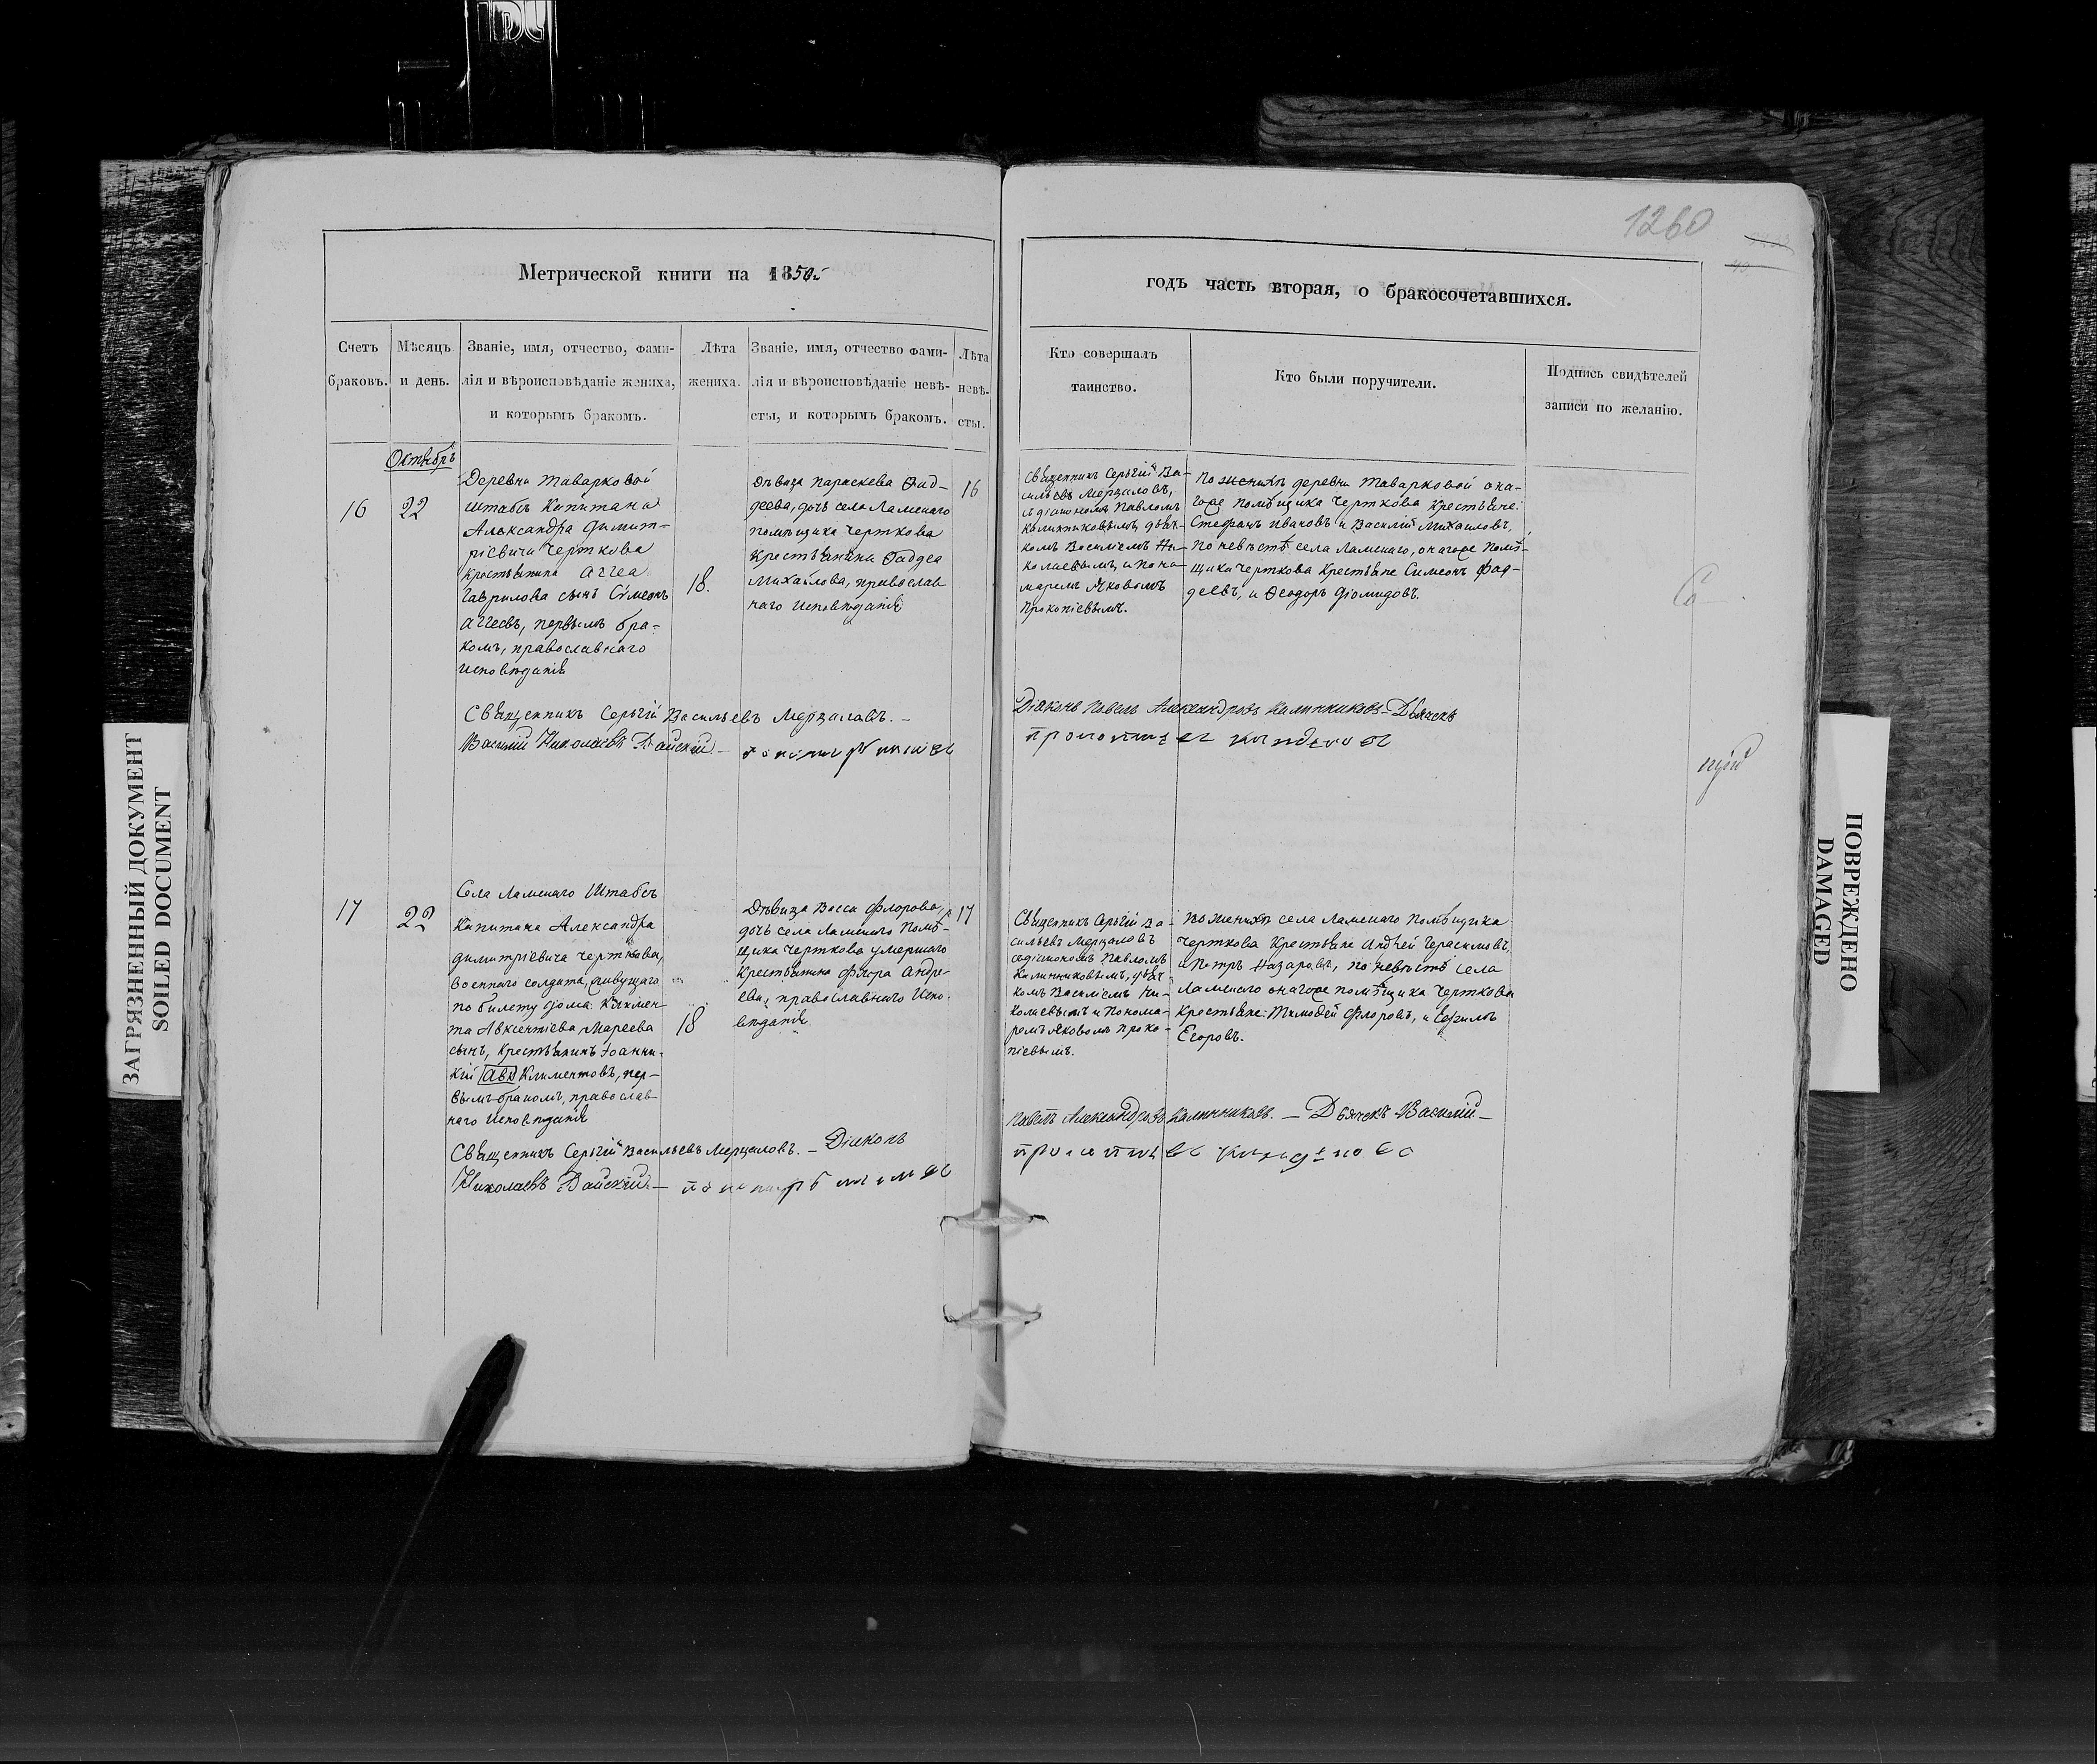 1260
Метрической книги на 1850й
годъ часть вторая, о бракосочетавшихся.
Счетъ браковъ.
Мѣсяцъ и день.
Званіе, имя, отчество, фами-
лія и вѣроисповѣданіе жениха,
и которымъ бракомъ.
Лѣта
жениха.
Званіе, имя, отчество фами-
лія и вѣроисповѣданіе невѣ-
сты, и которымъ бракомъ.
Лѣта
невѣ-
сты.
Кто совершалъ
таинство.
Кто были поручители.
Подпись свидѣтелей
записи по желанію.
Октябрь
16
22
Деревни Товарковой
штабсъ Капитана
Александра Димит-
ріевича Черткова
Крестьянина Аггеа
Гаврилова сынъ Симеонъ
Аггеевъ, первымъ бра-
комъ, православнаго
исповѣданія
18.
Дѣвица Параскева Фад-
деева, дочь села Ламскаго
помѣщика Черткова
Крестьянина Фаддеа
Михайлова, православ
наго исповѣданія
16
Священникъ Сергій Ва-
сильевъ Мерцаловъ,
съ діакономъ Павломъ
Калинниковымъ, дьяч-
комъ Василіемъ Ни-
колаевымъ, и поно-
маремъ Яковомъ
Прокопіевымъ.
По женихѣ деревни Товарковой она-
гоже помѣщика Черткова Крестьяне:
Стефанъ Ивановъ и Василій Михаиловъ,
по невѣстѣ села Ламскаго, онагоже помѣ-
щика Черткова Крестьяне Симеонъ Фад-
деевъ, и Ѳеодоръ Діомидовъ.
Священникъ Сергій Васильевъ Мерцаловъ. –
Діаконъ Павелъ Александровъ Калинниковъ – Дьячекъ
Василій Николаевъ Вайский –
17
22
Села Ламскаго Штабсъ
Капитана Александра
Димитріевича Черткова,
военнаго солдата, живущаго
по билету дома Климен
та Авксентіева Мареева
сынъ, Крестьянинъ Іоанни-
кій Авк Климентовъ, пер-
вымъ бракомъ, православ
наго исповѣданія
18
Дѣвица Васса Флорова,
дочь села Ламскаго помѣ-
щика Черткова умершаго
Крестьянина Флора Андре-
ева, православнаго испо-
вѣданія
17
Священникъ Сергій Ва-
сильевъ Мерцаловъ
съ діакономъ Павломъ
Калинниковымъ, дьяч-
комъ Василіемъ Ни-
колаевымъ и Понома-
ремъ Яковомъ Проко-
піевымъ.
По женихѣ села Ламскаго помѣщика
Черткова Крестьяне Андрей Герасимовъ,
и Петръ Назаровъ, по невѣстѣ села
Ламскаго онагоже помѣщика Черткова
Крестьяне: Тимофей Флоровъ, и
Егоровъ.
Священникъ Сергій Васильевъ Мерцаловъ. – Діаконъ
Павелъ Александровъ Калинниковъ. – Дьячекъ Василій –
Николаевъ Вайский –
ЗАГРЯЗНЕННЫЙ ДОКУМЕНТ
SOILED DOCUMENT
ПОВРЕЖДЕНО
DAMAGED